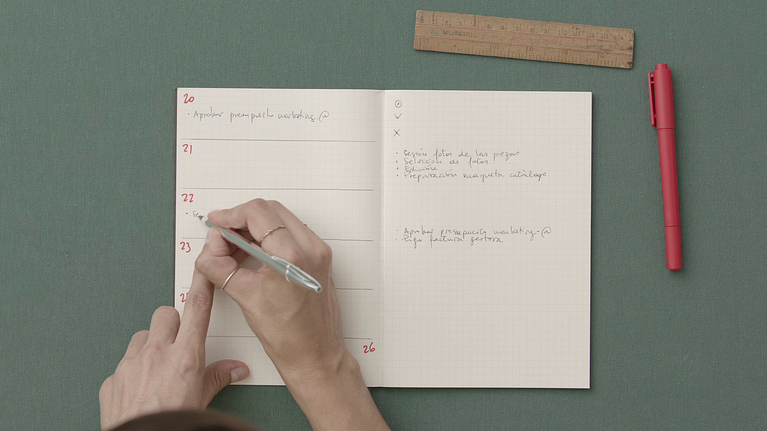 20
· Aprobar presupuesto marketing. @
21
22
· Se
23
2
26
· Sesión fotos de las piezas
· Selección de fotos
· Edición
· Preparación maqueta catálogo
· Aprobar presupuesto marketing. @
· factura gestora